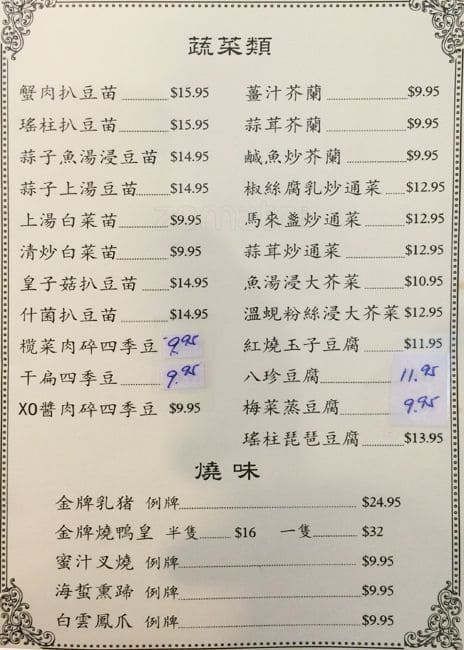 蔬菜類
蟹肉扒豆苗 $15.95
瑤柱扒豆苗 $15.95
蒜子魚湯浸豆苗 $14.95
蒜子上湯豆苗 $14.95
上湯白菜苗 $9.95
清炒白菜苗 $9.95
皇子菇扒豆苗 $14.95
什菌扒豆苗 $14.95
榄菜肉碎四季豆 9.95
干扁四季豆 9.95
XO醬肉碎四季豆 $9.95
薑汁芥蘭 $9.95
蒜茸芥蘭 $9.95
鹹魚炒芥蘭 $9.95
椒絲腐乳炒通菜 $12.95
馬來盞炒通菜 $12.95
蒜茸炒通菜 $12.95
魚湯浸大芥菜 $10.95
溫蜆粉絲浸大芥菜 $12.95
紅燒玉子豆腐 $11.95
八珍豆腐 11.95
梅菜蒸豆腐 9.95
瑤柱琵琶豆腐 $13.95
燒味
金牌乳猪 例牌 $24.95
金牌燒鴨皇 半隻 $16 一隻 $32
蜜汁叉燒 例牌 $9.95
海蜇熏蹄 例牌 $9.95
白雲鳳爪 例牌 $9.95